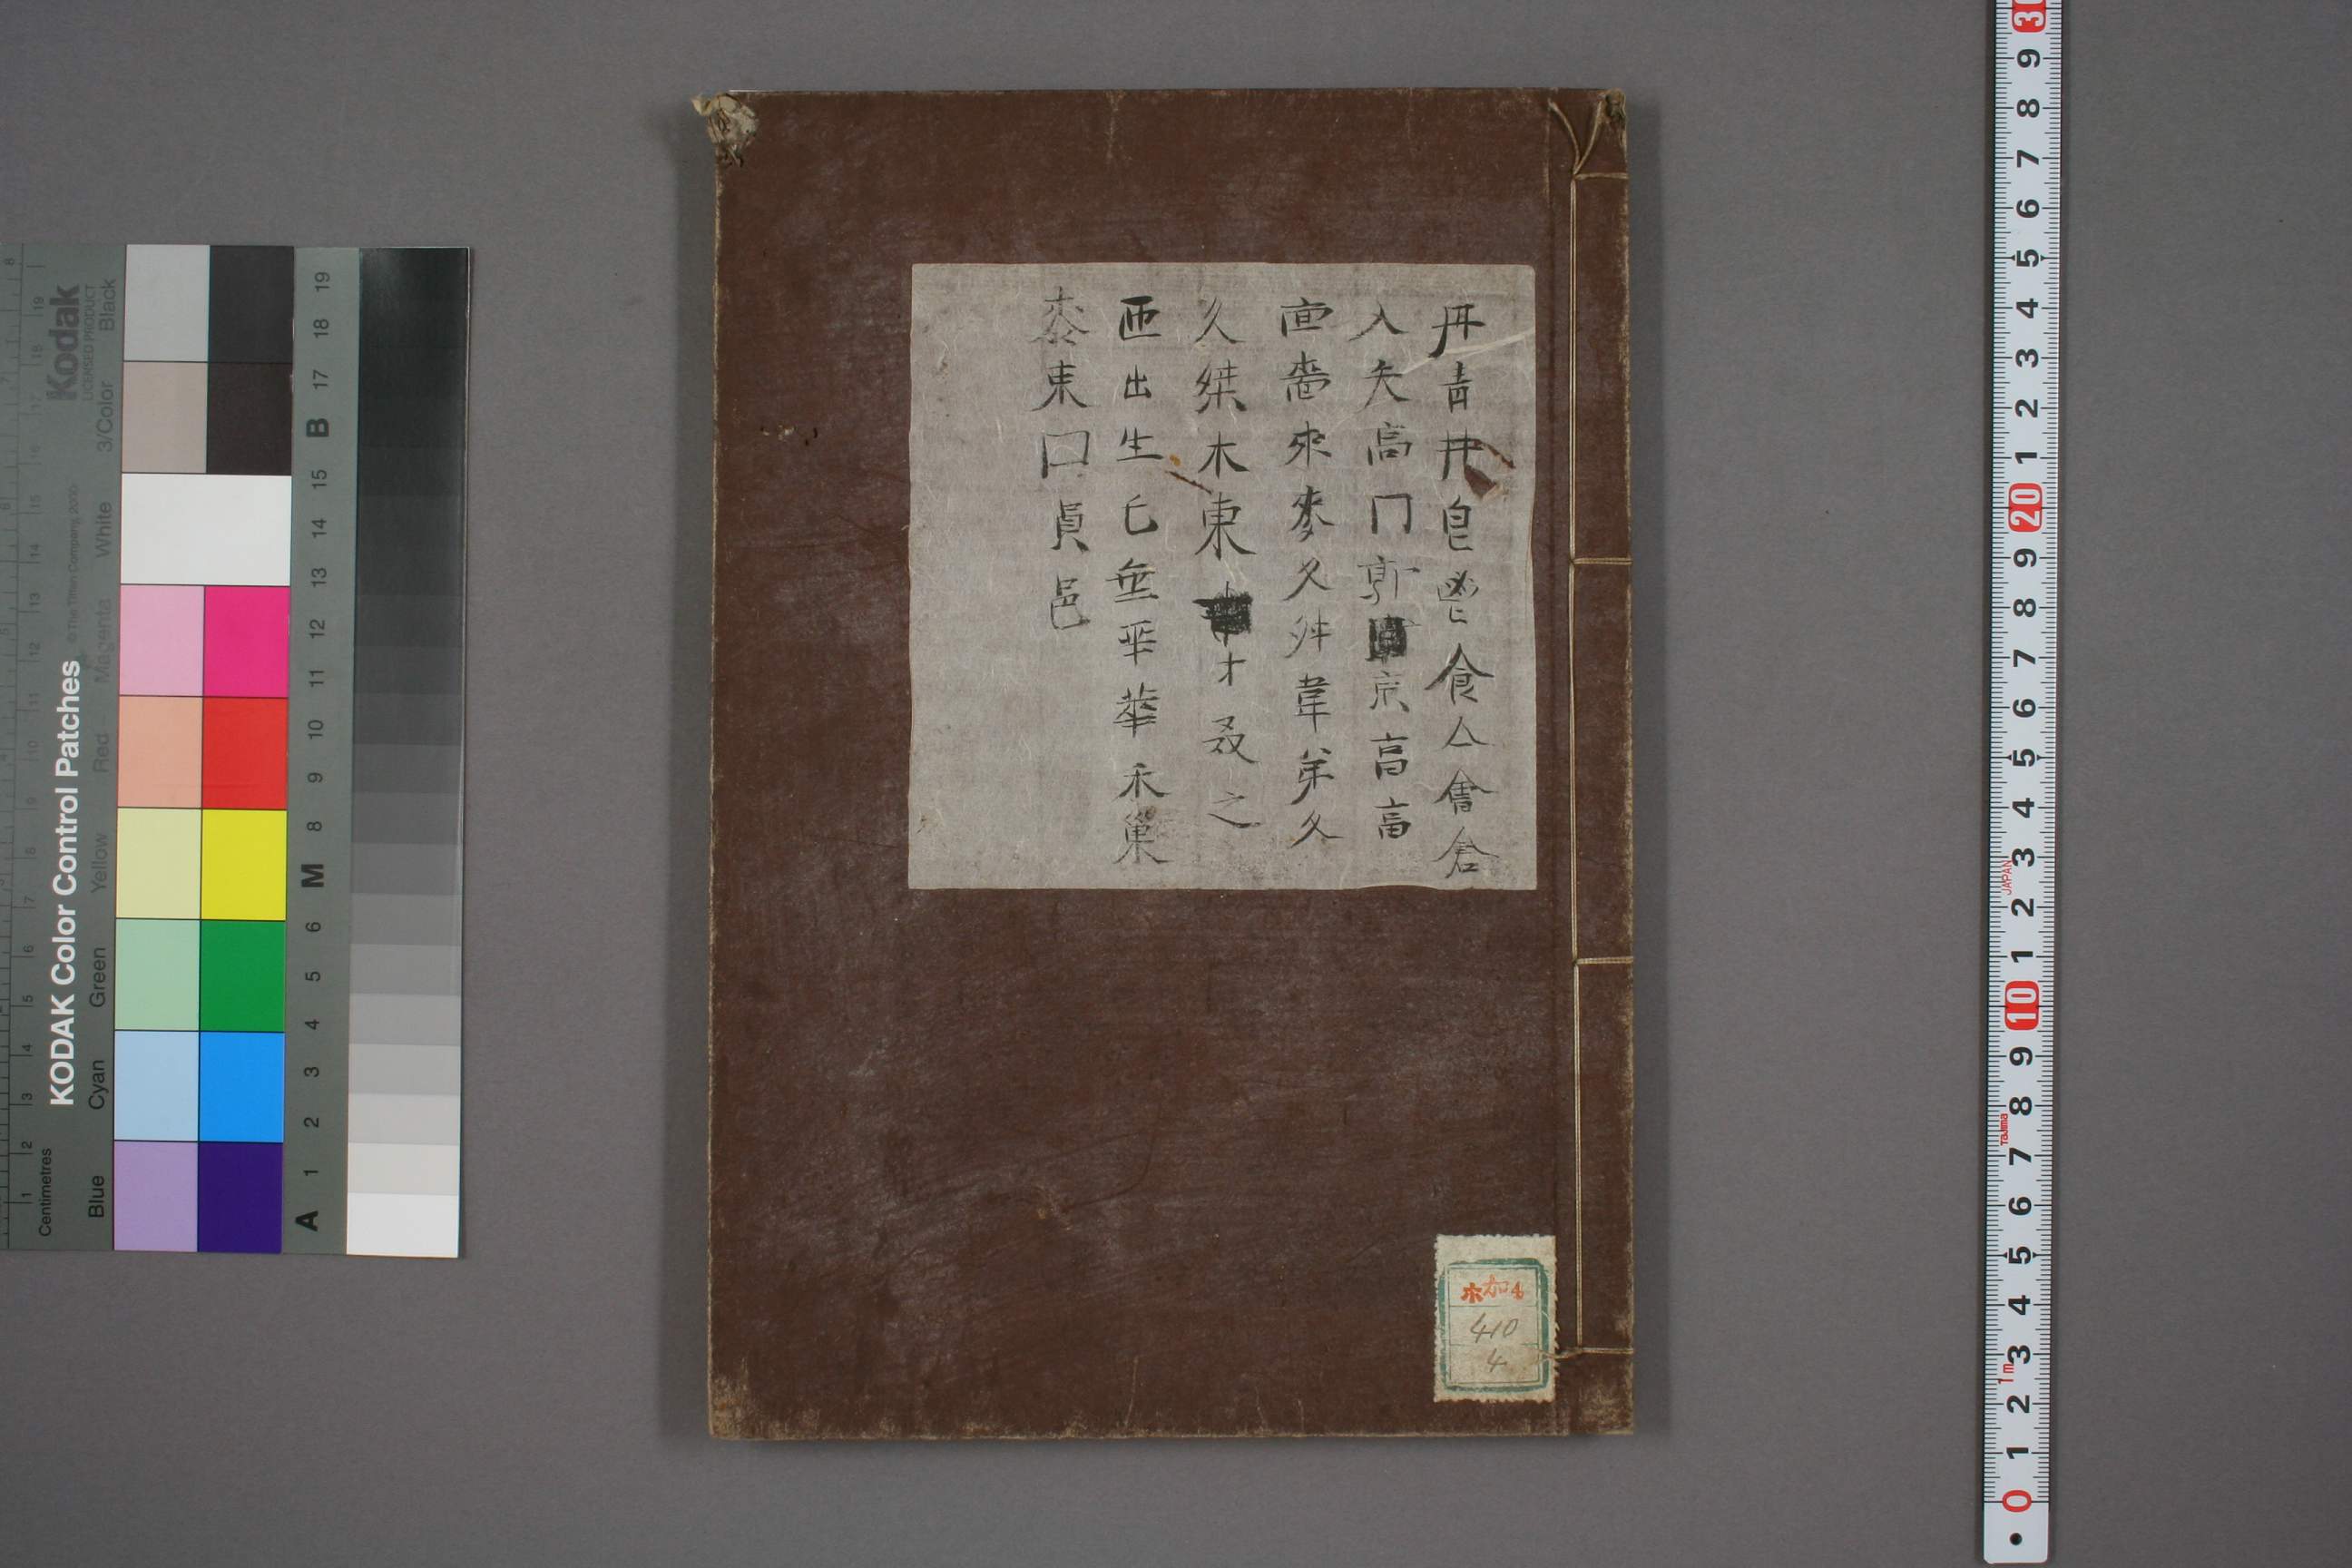 丹青井皀鬯食亼會倉
入矢高冂𩫏京亯㫗
㐭嗇來麥夊舛韋弟夂
久桀木東才叒之
帀出生乇𠂹𠌶華禾巢
桼束囗員邑
木加4
410
4
KODAK Color Control Patches
Kodak
LICENSED PRODUCT
© The Tiffen Company, 2000
Centimetres
Blue Cyan Green Yellow Red Magenta White 3/Color Black
A 1 2 3 4 5 6 M 8 9 10 11 12 13 14 15 B 17 18 19
30 9 8 7 6 5 4 3 2 1 20 9 8 7 6 5 4 3 2 1 10 9 8 7 6 5 4 3 2 1 0
JAPAN
Tajima
1m